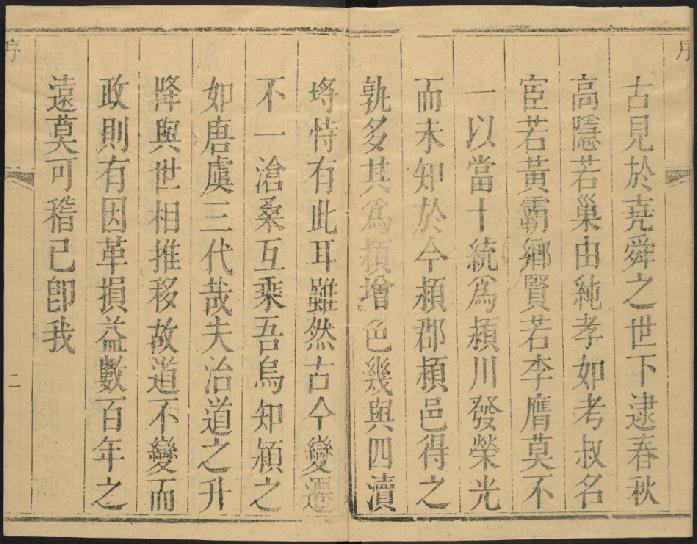 序
古見於堯舜之世下逮春秋
高隱若巢由純孝如考叔名
宦若黃霸鄉賢若李膺莫不
一以當十統為潁川發榮光
而未知於今潁郡潁邑得之
孰多其為潁增色幾與四瀆
埒恃有此耳雖然古今變遷
不一滄桑互乘吾烏知潁之
如唐虞三代哉夫治道之升
降與世相推移故道不變而
政則有因革損益數百年之
遠莫可稽已卽我
序
二